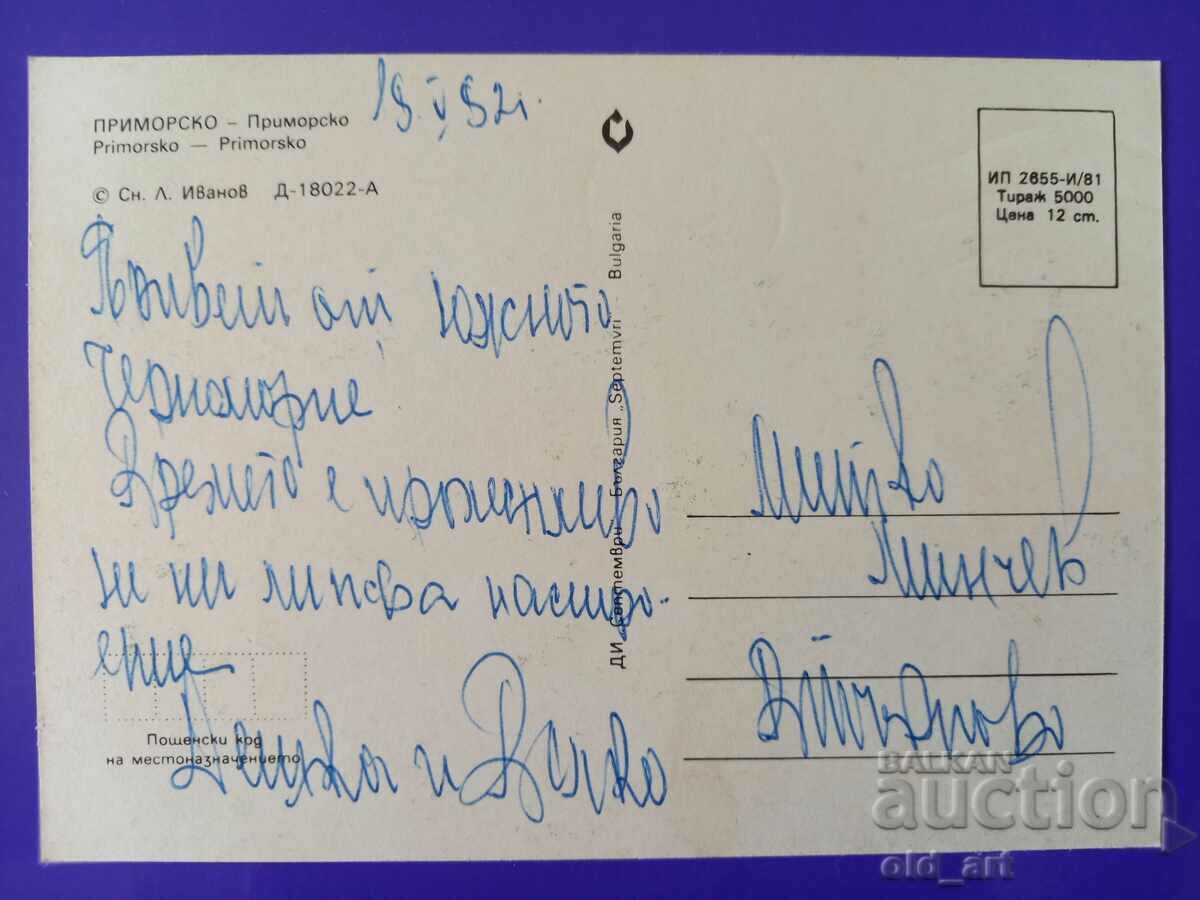 19.V.92г.
ПРИМОРСКО – Приморско
Primorsko — Primorsko
© Сн. Л. Иванов Д-18022-А
ИП 2655-И/81
Тираж 5000
Цена 12 ст.
Привет от южното
Черноморие
Времето е променливо
ни липсва настро-
ение
и
Пощенски код
на местоназначението
ДИ „Септември" България „Septemvri" - Bulgaria
Митко
Минчев
В Търново
BALKAN
auction
old_art